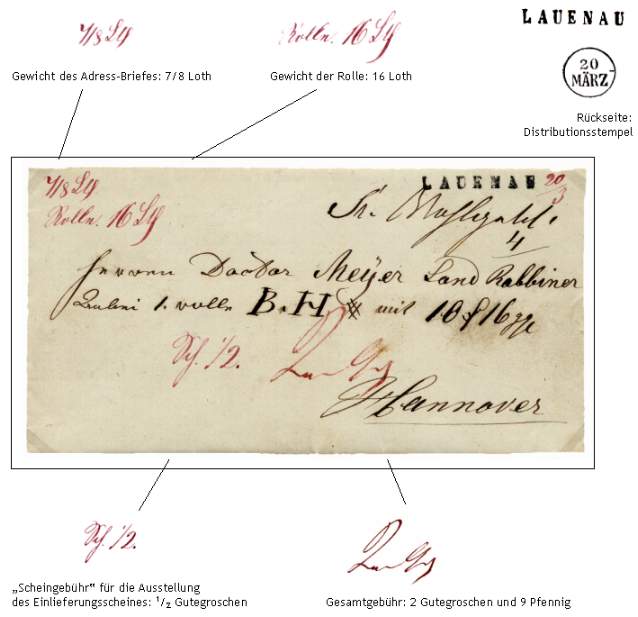 7/8 Lth
Rolln. 16 Lth
LAUENAU
Gewicht des Adress-Briefes: 7/8 Loth
Gewicht der Rolle: 16 Loth
20
MÄRZ
Rückseite:
Distributionsstempel
7/8 Lth
LAUENAU 20/3
Rolln. 16 Lth
4
Herren Doctor Meyer Land Rabbiner
1. rolle B. H mit 10 16
Sch. 1/2.
Hannover
Sch. 1/2.
„Scheingebühr“ für die Ausstellung
des Einlieferungsscheines: 1/2 Gutegroschen
Gesamtgebühr: 2 Gutegroschen und 9 Pfennig